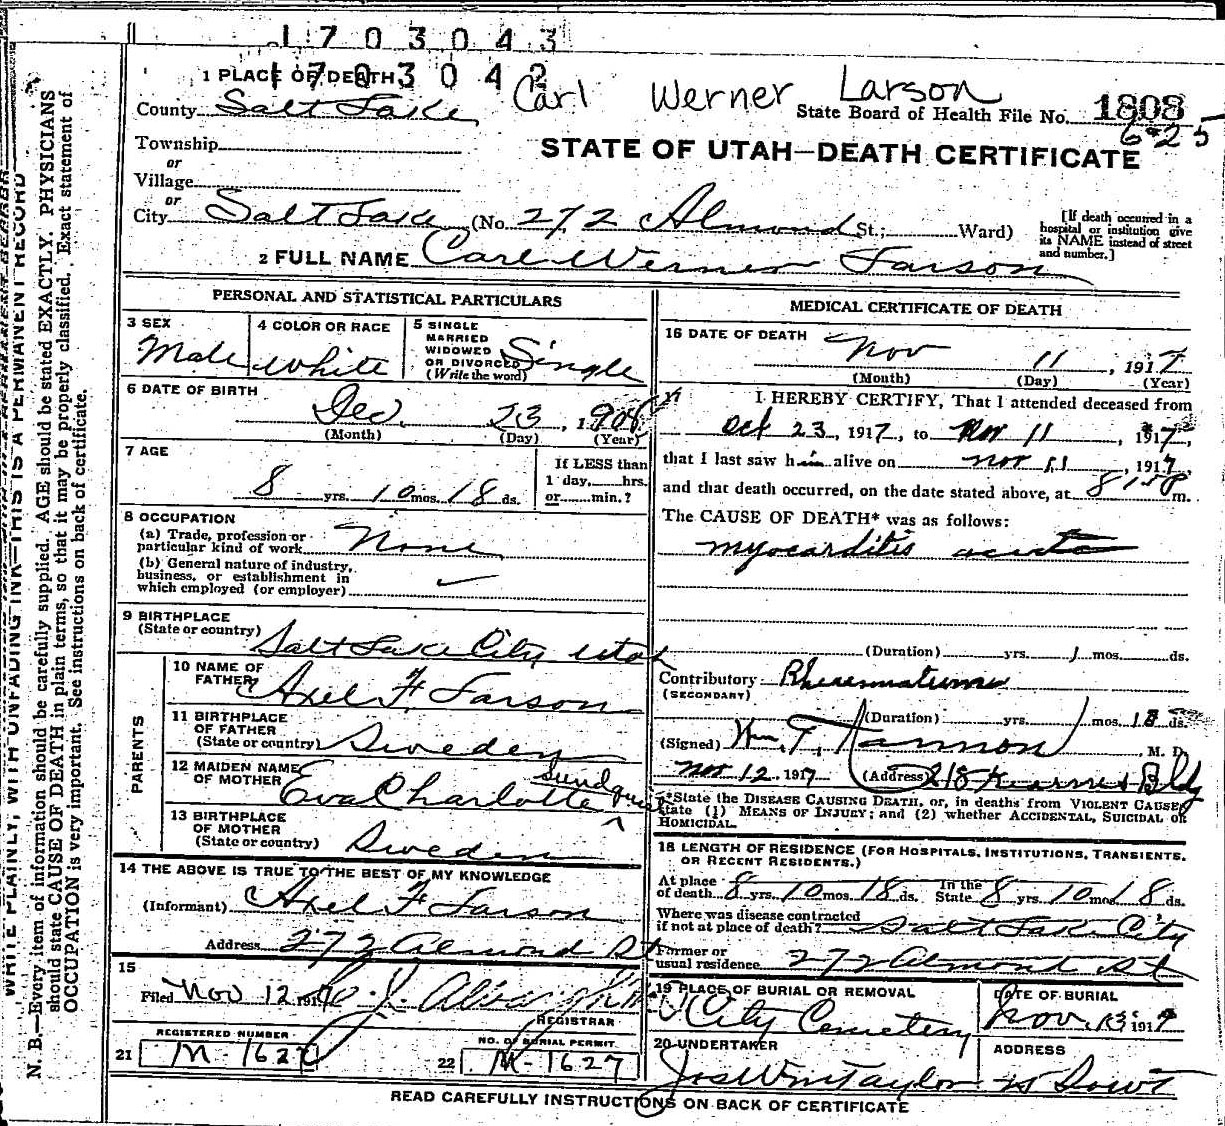 1703043
1703042
1 PLACE OF DEATH
Carl Werner Larson
County Salt Lake
State Board of Health File No. 1808
625
Township
STATE OF UTAH—DEATH CERTIFICATE
or
Village
or
City Salt Lake (No. 272 Almond St.; Ward)
[If death occurred in a
hospital or institution give
its NAME instead of street
and number.]
2 FULL NAME Carl Werner Larson
PERSONAL AND STATISTICAL PARTICULARS
3 SEX Male
4 COLOR OR RACE white
5 SINGLE
MARRIED
WIDOWED
OR DIVORCED
(Write the word) Single
6 DATE OF BIRTH
Dec. 23, 1908
(Month) (Day) (Year)
7 AGE
8 yrs. 10 mos. 18 ds.
If LESS than
1 day, hrs.
or min.?
8 OCCUPATION
(a) Trade, profession or
particular kind of work None
(b) General nature of industry,
business, or establishment in
which employed (or employer)
9 BIRTHPLACE
(State or country) Salt Lake City Utah
PARENTS
10 NAME OF
FATHER Axel F. Larson
11 BIRTHPLACE
OF FATHER
(State or country) Sweden
12 MAIDEN NAME
OF MOTHER Eva Charlotte Sundquist
13 BIRTHPLACE
OF MOTHER
(State or country) Sweden
14 THE ABOVE IS TRUE TO THE BEST OF MY KNOWLEDGE
(Informant) Axel F Larson
Address 272 Almond St
15
Filed Nov 12 1917
REGISTRAR
REGISTERED NUMBER
21 M-1627
NO. OF BURIAL PERMIT
22 M-1627
MEDICAL CERTIFICATE OF DEATH
16 DATE OF DEATH
Nov 11, 1917
(Month) (Day) (Year)
17 I HEREBY CERTIFY, That I attended deceased from
Oct 23, 1917, to Nov 11, 1917,
that I last saw him alive on Nov 11, 1917,
and that death occurred, on the date stated above, at m.
The CAUSE OF DEATH* was as follows:
myocarditis acute
(Duration) yrs. 1 mos. ds.
Contributory Rheumatism
(SECONDARY)
(Duration) yrs. 1 mos. 18 ds.
(Signed) Wm. T. Hannon M. D.
Nov 12 1917 (Address) 218 Kearns Bldg
*State the DISEASE CAUSING DEATH, or, in deaths from VIOLENT CAUSES,
state (1) MEANS OF INJURY; and (2) whether ACCIDENTAL, SUICIDAL or
HOMICIDAL.
18 LENGTH OF RESIDENCE (FOR HOSPITALS, INSTITUTIONS, TRANSIENTS,
OR RECENT RESIDENTS.)
At place
of death 8 yrs. 10 mos. 18 ds.
In the
State 8 yrs. 10 mos. 18 ds.
Where was disease contracted
if not at place of death? Salt Lake City
Former or
usual residence 272 Almond St
19 PLACE OF BURIAL OR REMOVAL
City Cemetery
DATE OF BURIAL
Nov. 13 1917
20 UNDERTAKER
Jos Wm Taylor
ADDRESS
READ CAREFULLY INSTRUCTIONS ON BACK OF CERTIFICATE
WRITE PLAINLY, WITH UNFADING INK—THIS IS A PERMANENT RECORD
N. B.—Every item of information should be carefully supplied. AGE should be stated EXACTLY. PHYSICIANS
should state CAUSE OF DEATH in plain terms, so that it may be properly classified. Exact statement of
OCCUPATION is very important. See instructions on back of certificate.